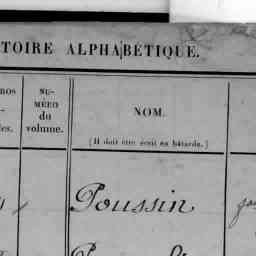 TOIRE ALPHABÉTIQUE.
NU-
MÉRO
du
volume.
NOM.
(Il doit être écrit en bâtarde.)
Poussin